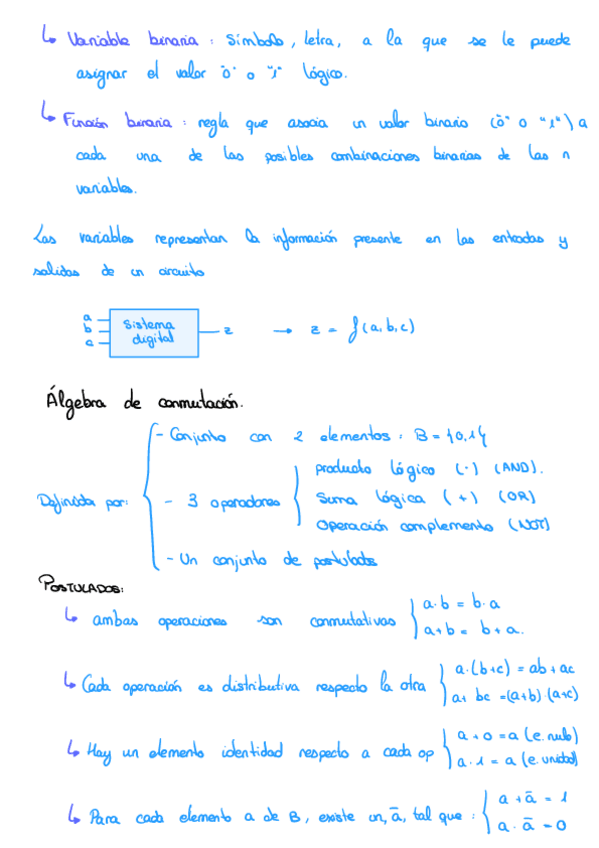 ↳ Variable binaria : Símbolo, letra, a la que se le puede
asignar el valor "0" o "1" lógico.
↳ Función binaria : regla que asocia un valor binario ("0" o "1") a
cada una de las posibles combinaciones binarias de las n
variables.
Las variables representan la información presente en las entradas y
salidas de un circuito
a
b
c
Sistema
digital
z → z = f(a,b,c)
Álgebra de conmutación.
- Conjunto con 2 elementos : B = {0,1}
producto lógico (·) (AND).
Definida por: - 3 operadores Suma lógica (+) (OR)
Operación complemento (NOT)
- Un conjunto de postulados
POSTULADOS:
↳ ambas operaciones son conmutativas
a·b = b·a
a+b = b+a.
↳ Cada operación es distributiva respecto la otra
a·(b+c) = ab+ac
a+ bc =(a+b)·(a+c)
↳ Hay un elemento identidad respecto a cada op
a+0=a (e.nulo)
a·1=a (e.unidad)
↳ Para cada elemento a de B, existe un, ā, tal que :
a+ā = 1
a·ā = 0